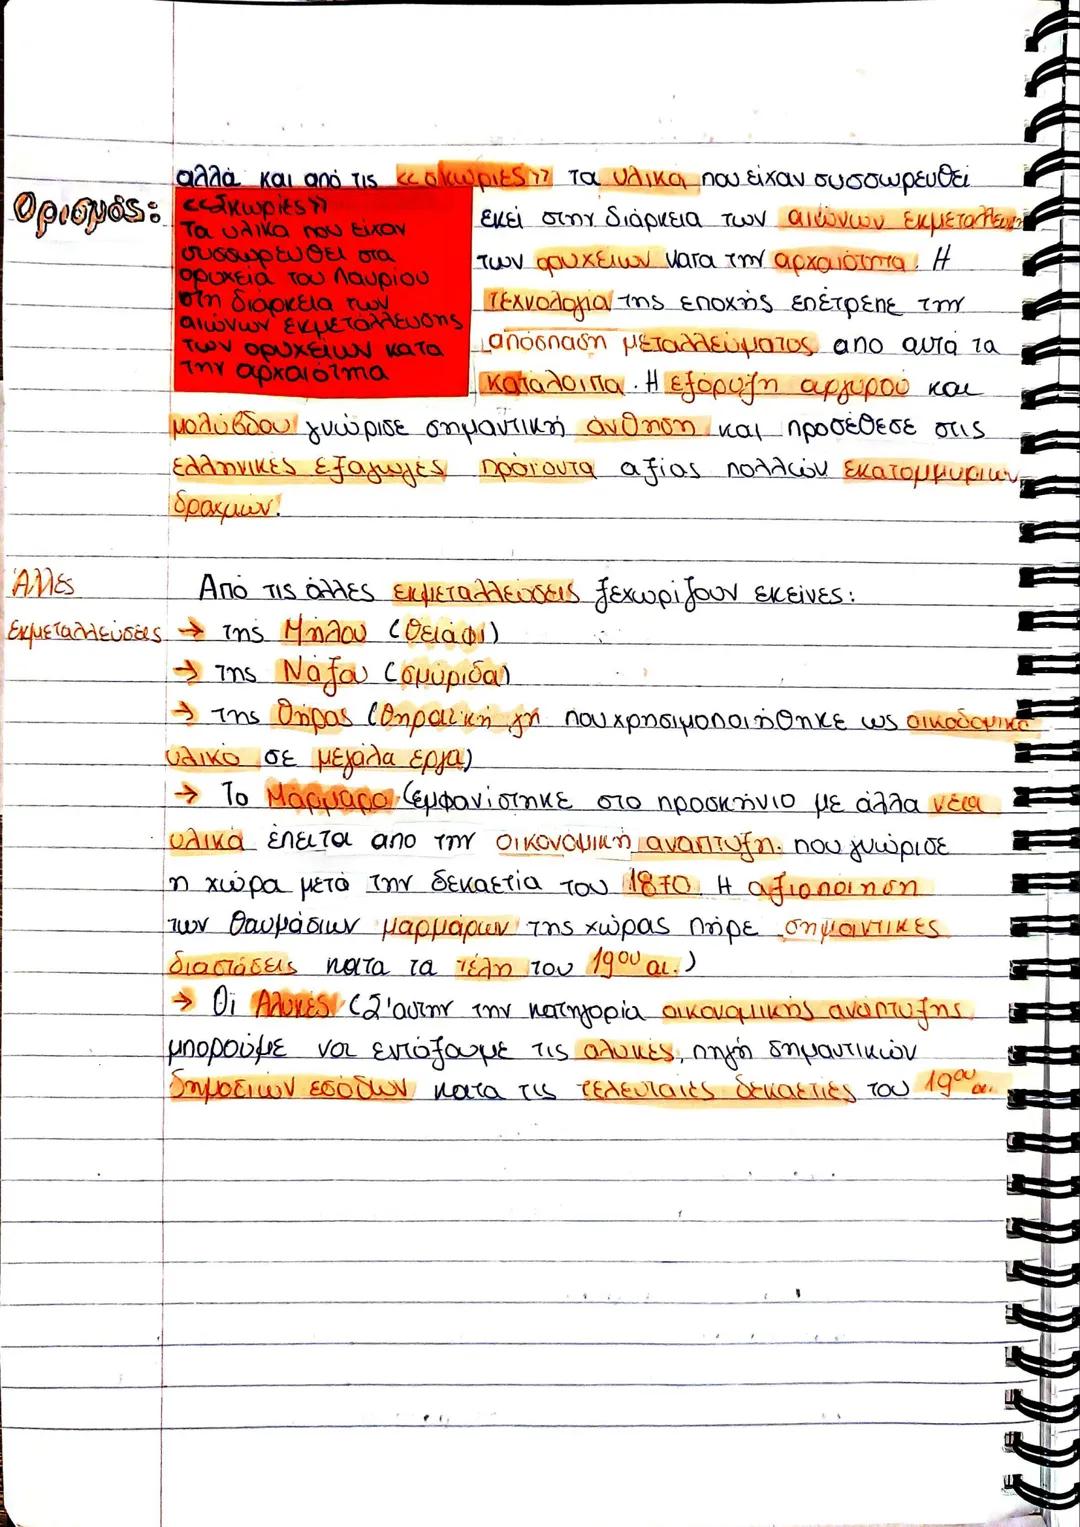 αλλά και από τις «σκωριές» τα υλικά που είχαν συσσωρευθεί
Ορισμός:
«Σκωρίες»
Τα υλικά που είχαν
συσσωρευθεί στα
ορυχεία του Λαυρίου
στη διάρκεια των
αιώνων εκμετάλλευσης
των ορυχείων κατά
την αρχαιότητα
εκεί στην διάρκεια των αιώνων εκμετάλλευσης
των ορυχείων κατα την αρχαιότητα. Η
τεχνολογία της εποχής επέτρεπε την
απόσπαση μεταλλεύματος απο αυτά τα
κατάλοιπα. Η εξόρυξη αργύρου και
μολύβδου γνώρισε σημαντική άνθηση και προσέθεσε στις
ελληνικές εξαγωγές προϊόντα αξίας πολλών εκατομμυρίων
δραχμών.
Άλλες
εκμεταλλεύσεις
Από τις άλλες εκμεταλλεύσεις ξεχωρίζουν εκείνες:
→ της Μήλου (θειάφι)
→ της Νάξου (σμύριδα)
→ της Θήρας (θηραϊκή γη που χρησιμοποιήθηκε ως οικοδομικό
υλικό σε μεγάλα έργα)
→ Το Μάρμαρο (εμφανίστηκε στο προσκήνιο με άλλα νέα
υλικά έπειτα απο την οικονομική ανάπτυξη. που γνώρισε
η χώρα μετά την δεκαετία του 1870. Η αξιοποίηση
των θαυμάσιων μαρμάρων της χώρας πήρε σημαντικές
διαστάσεις κατα τα τέλη του 19ου αι.)
→ Οι Αλυκές (Σ'αυτην την κατηγορία οικονομικής ανάπτυξης
μπορούμε να εντάξουμε τις αλυκές, πηγή σημαντικών
δημοσίων εσόδων κατα τις τελευταίες δεκαετίες του 19ου αι.